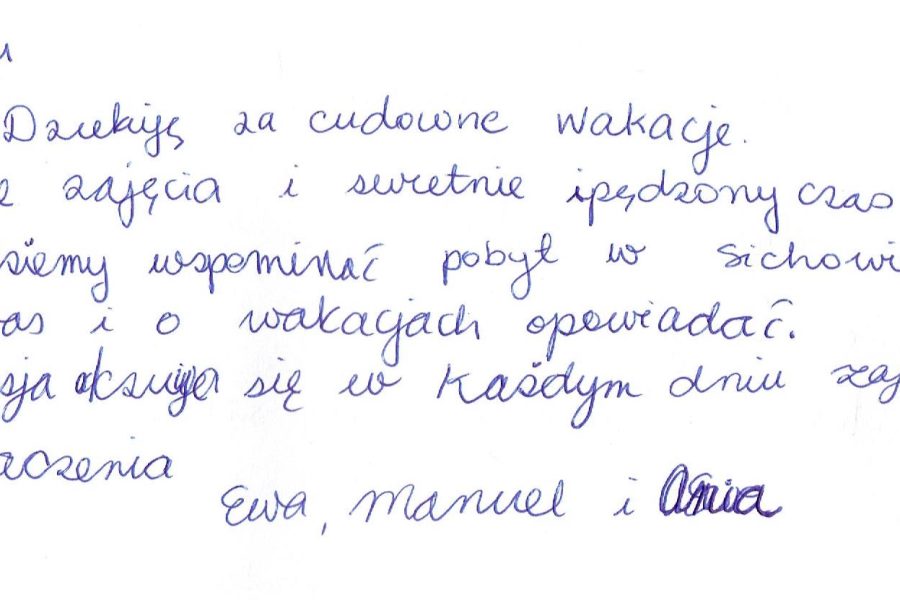 Dziekuję za cudowne wakacje.
zajęcia i swietnie spędzony czas
siemy wspominać pobyt w Sichowi
as i o wakacjach opowiadać.
sja się w każdym dniu zaj
aczenia
Ewa, Manuel i Ania